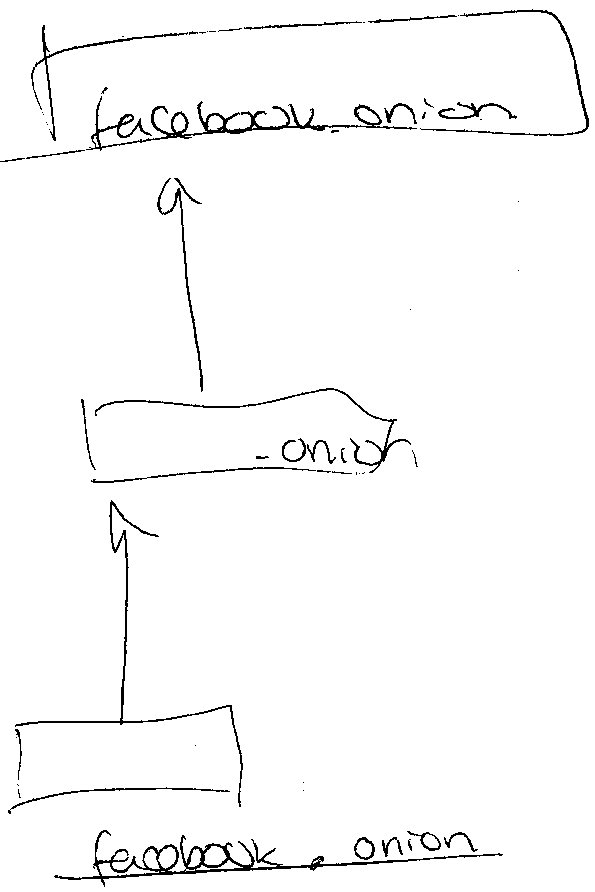 facebook.onion
.onion
facebook.onion